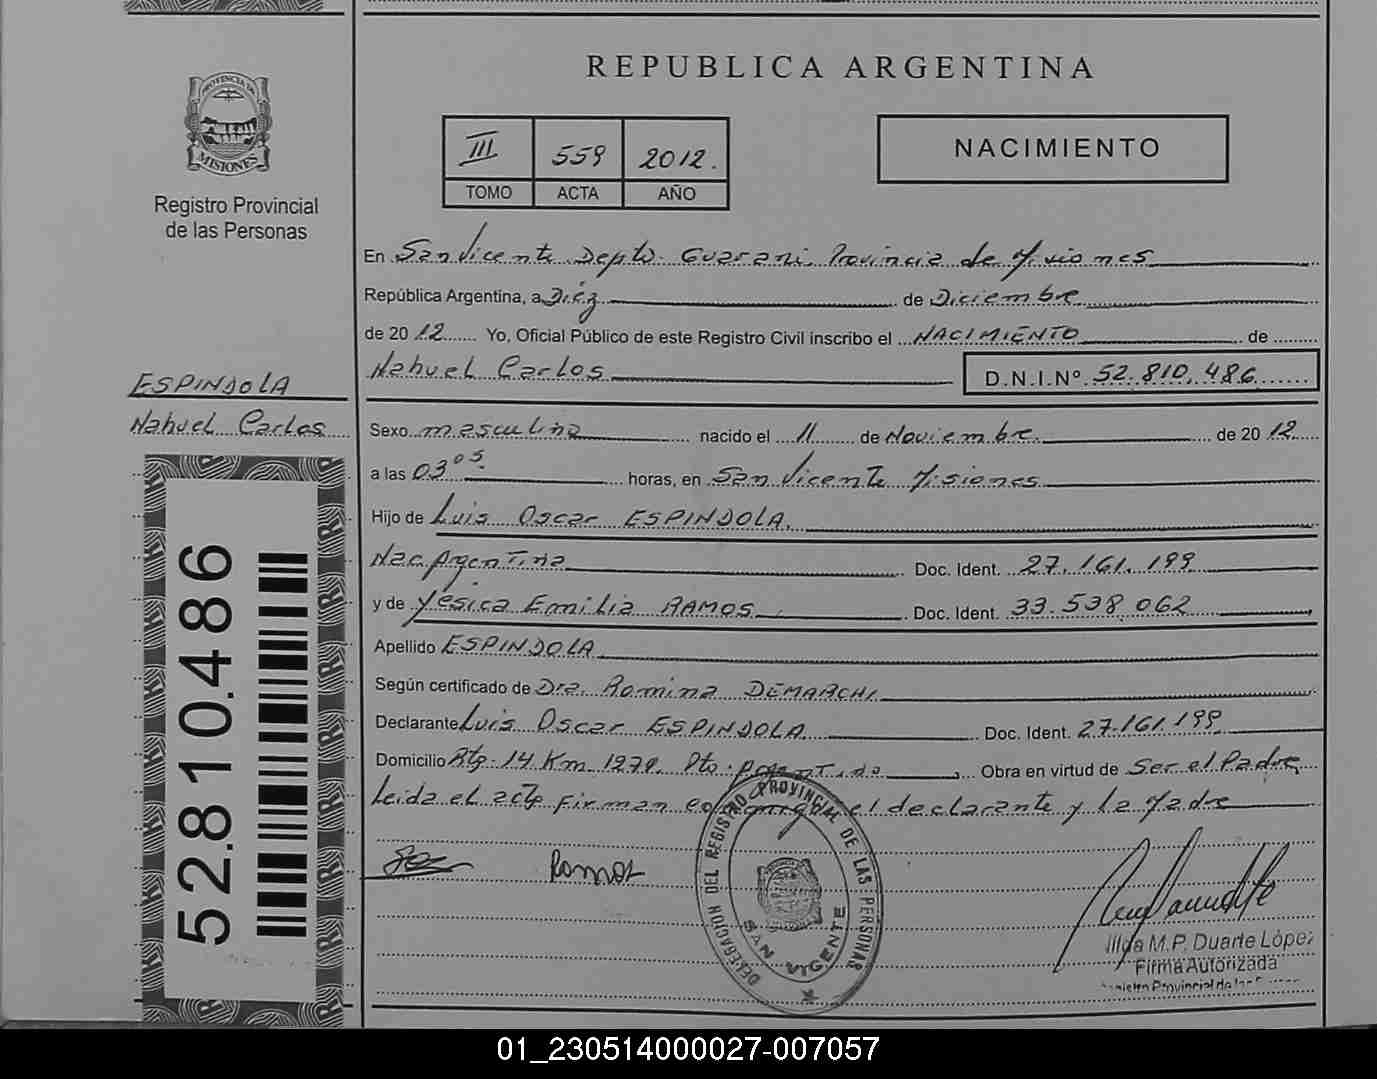 REPUBLICA ARGENTINA
PROVINCIA DE
MISIONES
Registro Provincial
de las Personas
III 559 2012.
TOMO ACTA AÑO
NACIMIENTO
En San Vicente Depto. Guarani, Provincia de Misiones
República Argentina, a Diéz de Diciembre
de 20 12 Yo, Oficial Público de este Registro Civil inscribo el NACIMIENTO de
Nahuel Carlos D.N.I.Nº 52.810.486
ESPINDOLA
Nahuel Carlos
Sexo masculino nacido el 11 de Noviembre de 20 12
a las 03 05 horas, en San Vicente Misiones
Hijo de Luis Oscar ESPINDOLA.
Nac Argentina Doc. Ident. 27.161.199
y de Yésica Emilia RAMOS Doc. Ident. 33.538.062
Apellido ESPINDOLA
Según certificado de Dra. Romina DEMARCHI
Declarante Luis Oscar ESPINDOLA Doc. Ident. 27.161.199
Domicilio Rta. 14 Km 1279. Pto. Argentino Obra en virtud de Ser el Padre
Leida el acta firman conmigo el declarante y la Madre
Ramos
52.810.486
DELEGACION DEL REGISTRO PROVINCIAL DE LAS PERSONAS
SAN VICENTE
Ilda M.P. Duarte López
Firma Autorizada
Provincial de las
01_230514000027-007057